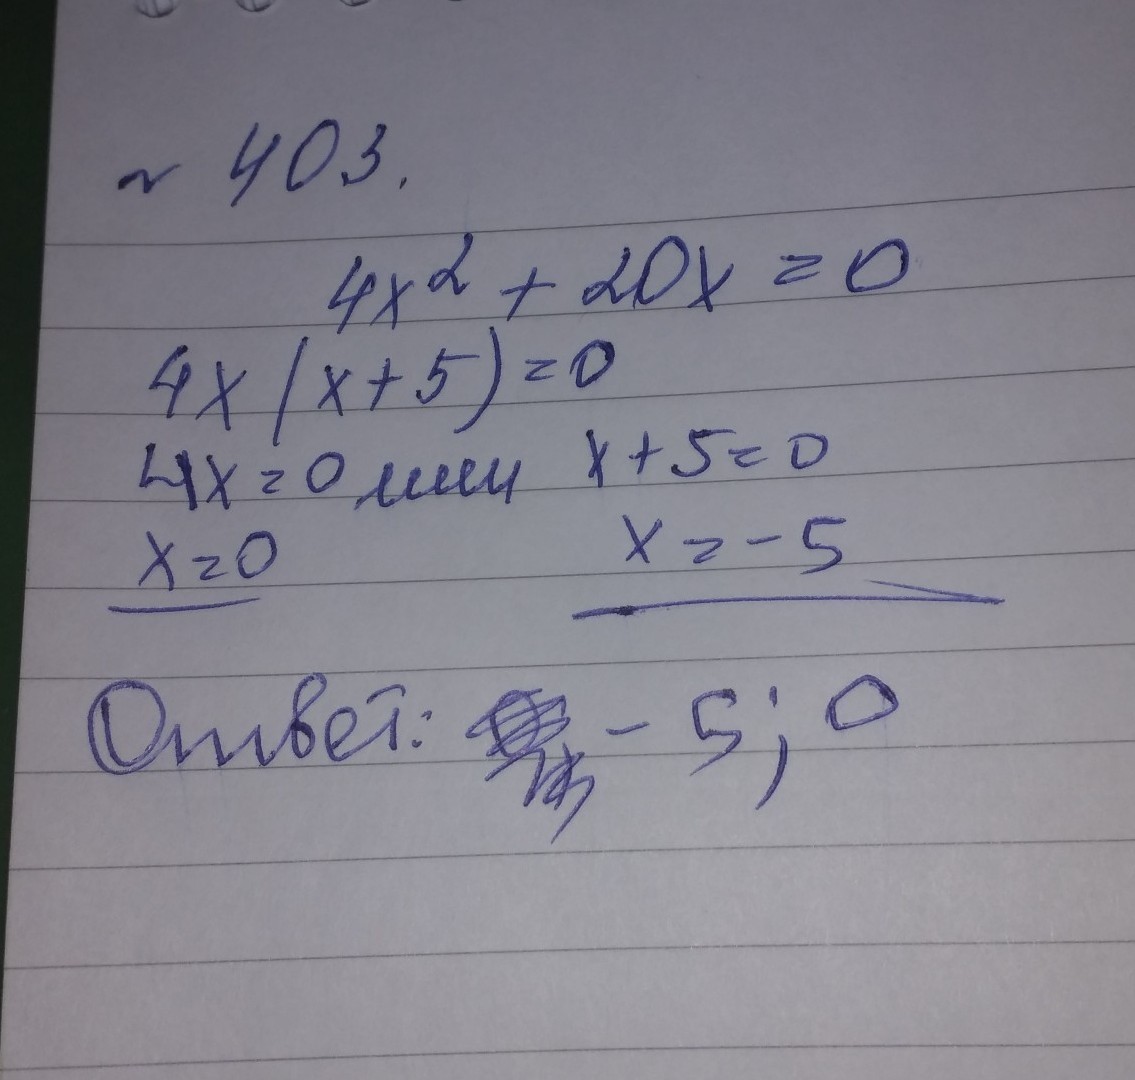 ~ 403.
4x² + 20x = 0
4x(x+5)=0
4x=0 или x+5=0
x=0 x=-5
Ответ: -5; 0